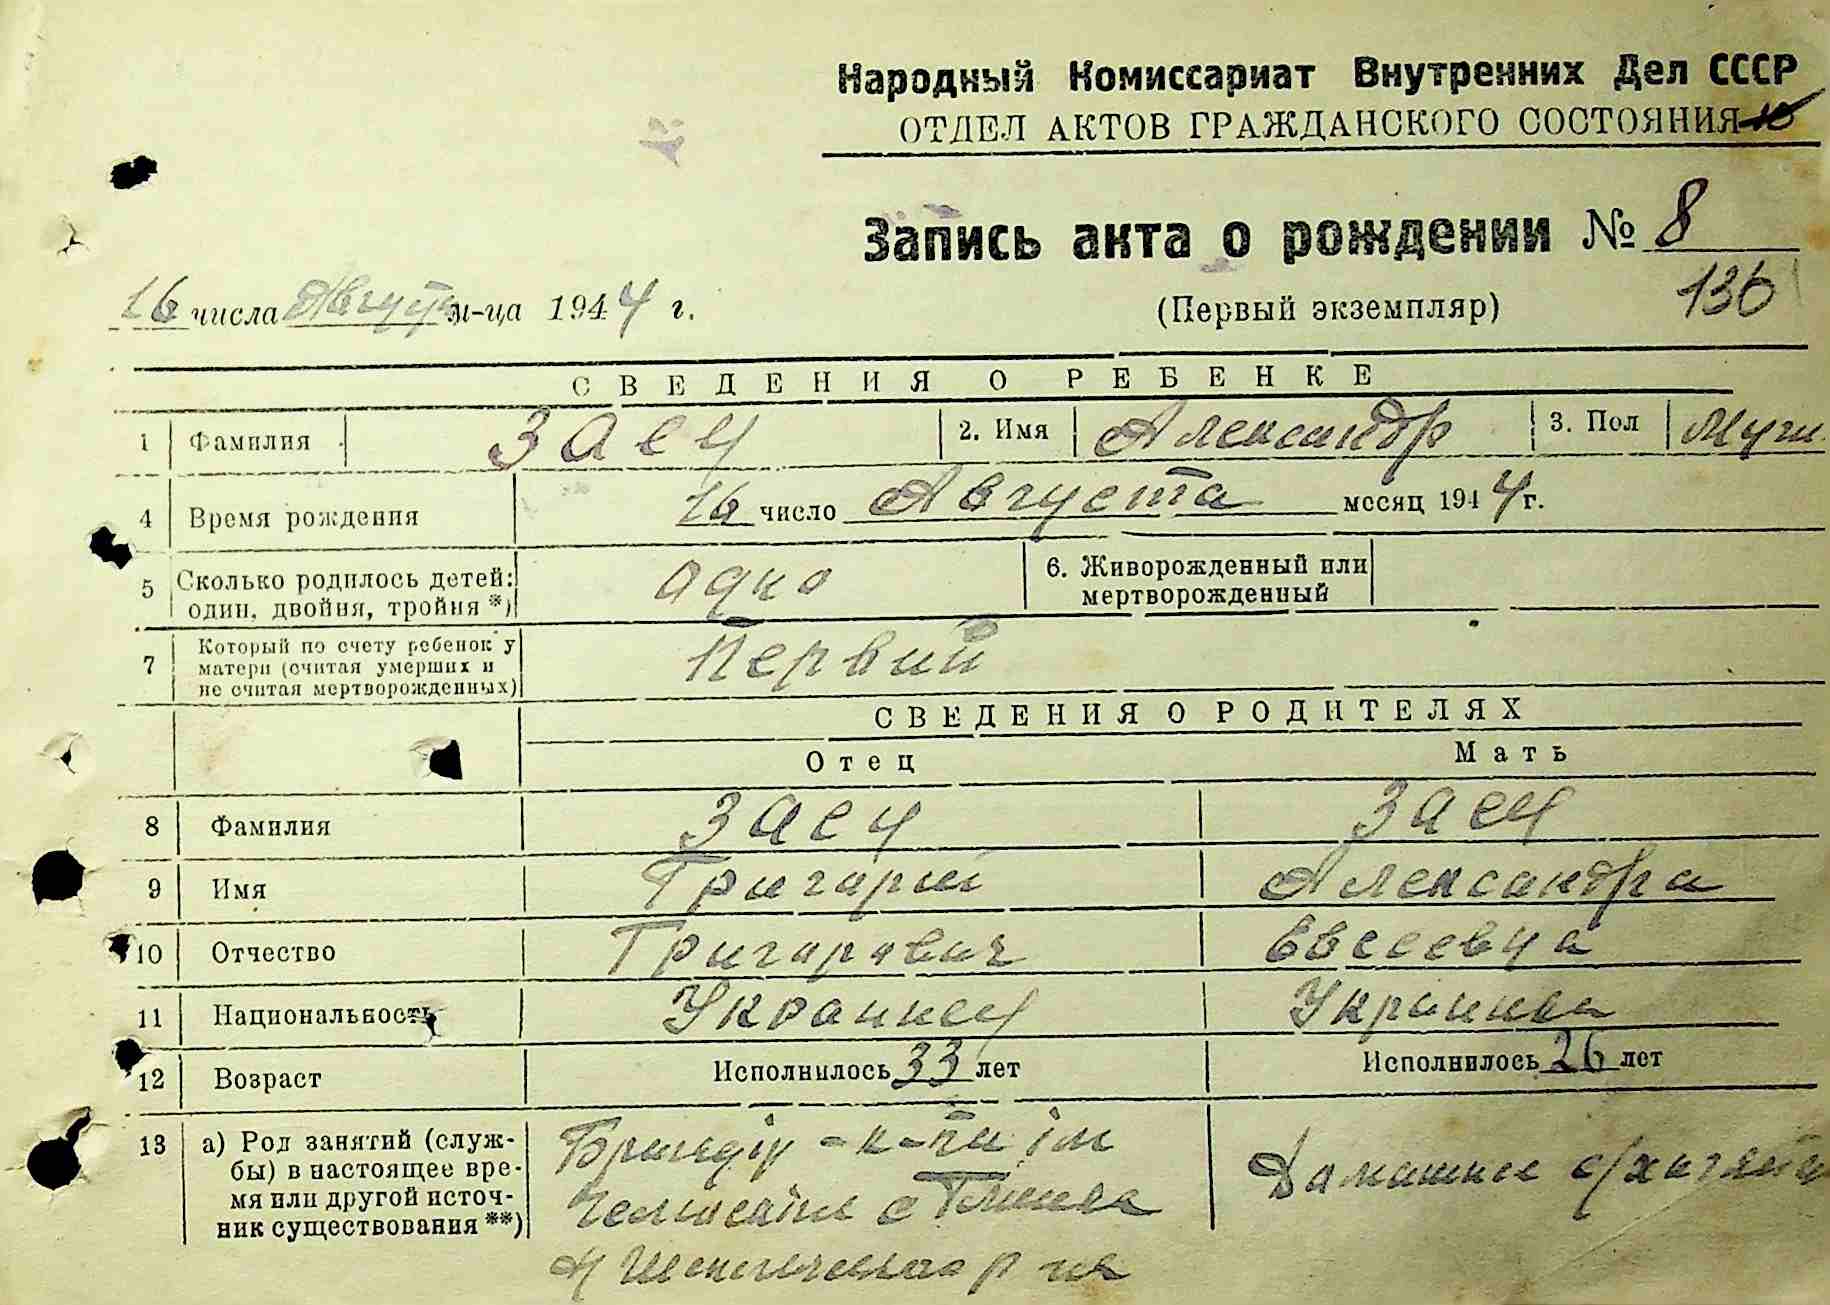 Народный Комиссариат Внутренних Дел СССР
ОТДЕЛ АКТОВ ГРАЖДАНСКОГО СОСТОЯНИЯ
Запись акта о рождении № 8
16 числа Августа м-ца 1944 г.
(Первый экземпляр)
136
СВЕДЕНИЯ О РЕБЕНКЕ
1 Фамилия Заец 2. Имя Александр 3. Пол Мужс.
4 Время рождения 16 число Августа месяц 1944 г.
5 Сколько родилось детей: один, двойня, тройня *) адно 6. Живорожденный или мертворожденный
7 Который по счету ребенок у матери (считая умерших и не считая мертворожденных) Первий
СВЕДЕНИЯ О РОДИТЕЛЯХ
Отец Мать
8 Фамилия Заец Заец
9 Имя Григарий Александра
10 Отчество Григарович Евсеевна
11 Национальность Украинец Украинка
12 Возраст Исполнилось 33 лет Исполнилось 26 лет
13 а) Род занятий (службы) в настоящее время или другой источник существования **)